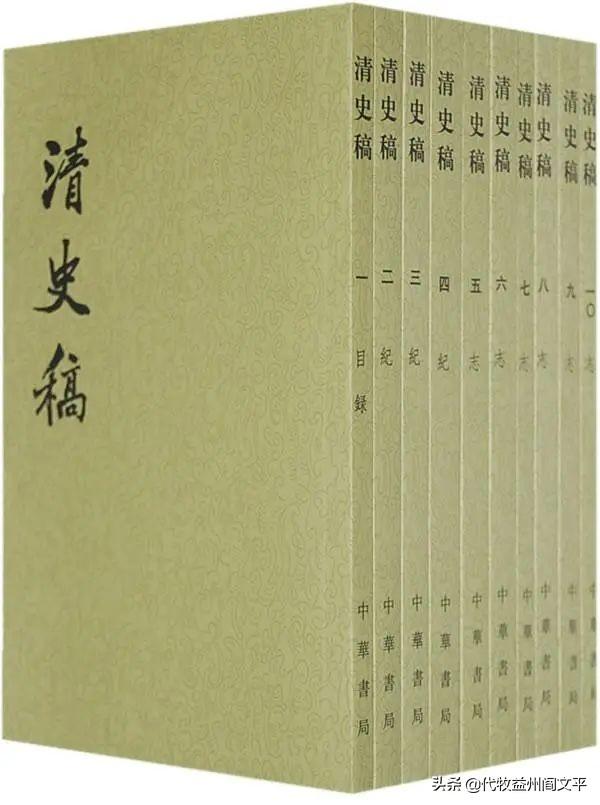 清史稿
清史稿 一 目録 中華書局
清史稿 二 紀 中華書局
清史稿 三 紀 中華書局
清史稿 四 紀 中華書局
清史稿 五 志 中華書局
清史稿 六 志 中華書局
清史稿 七 志 中華書局
清史稿 八 志 中華書局
清史稿 九 志 中華書局
清史稿 一〇 志 中華書局
头条 @代牧益州阎文平